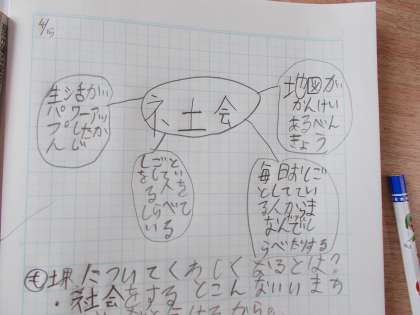 4/5
ネ土会
生活が
パワーアッ
プしたか
んじ
地図が
かんけい
あるべん
きょう
しごと
をして
る人を
しらべて
いる
毎日おしご
としててい
る人からま
なんでし
らべたりする
についてくわしくなるとは?
・社会をするとこんないいまち